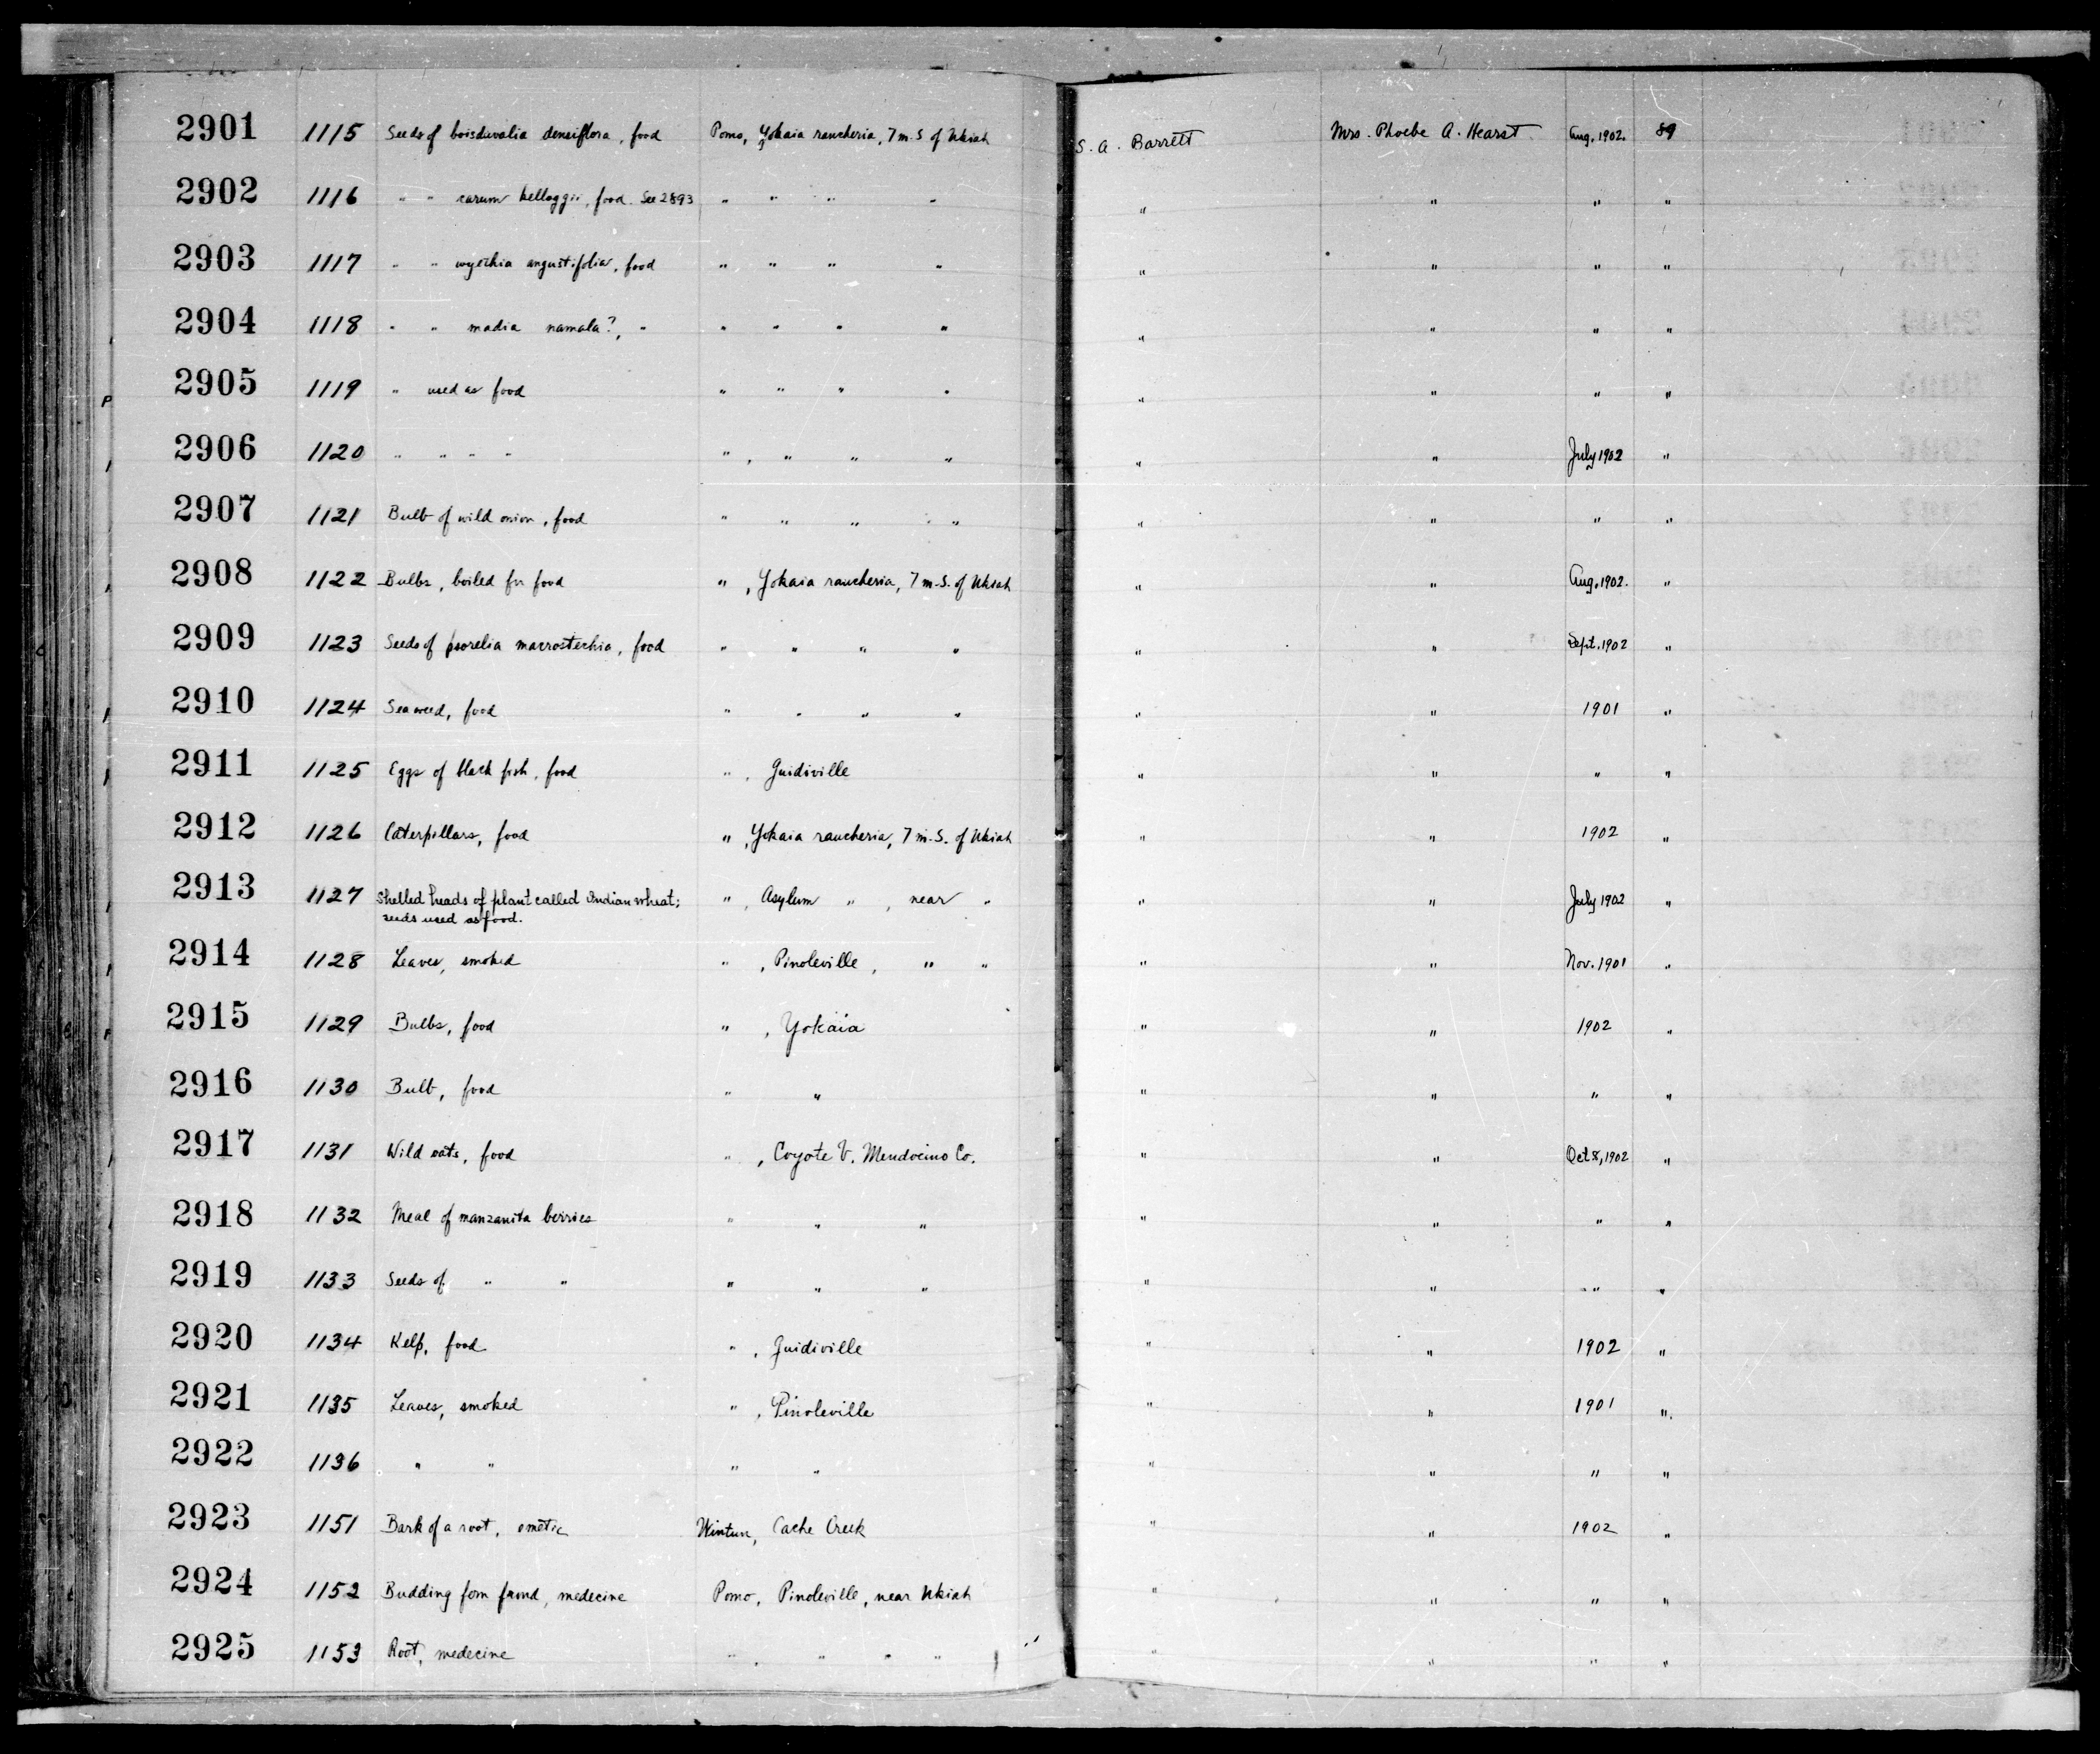 2901 1115 Seeds of boisduvalia densiflora, food Pomo, Yokaia rancheria, 7 m. S of Ukiah S. A. Barrett Mrs. Phoebe A. Hearst Aug. 1902. 89
2902 1116 " " carum kelloggii, food. See 2893 " " " " " " " "
2903 1117 " " wyethia angustifolia, food " " " " " " " "
2904 1118 " " madia namala?, " " " " " " " " "
2905 1119 " used as food " " " " " " " "
2906 1120 " " " " " , " " " " " July 1902 "
2907 1121 Bulb of wild onion, food " " " " " " " "
2908 1122 Bulbs, boiled for food " , Yokaia rancheria, 7 m. S. of Ukiah " " Aug. 1902. "
2909 1123 Seeds of psorelia macrostechia, food " " " " " " Sept. 1902 "
2910 1124 Seaweed, food " " " " " " 1901 "
2911 1125 Eggs of black fish, food " , Guidiville " " " "
2912 1126 Caterpillars, food " , Yokaia rancheria, 7 m. S. of Ukiah " " 1902 "
2913 1127 Shelled heads of plant called Indian wheat; " , Asylum " , near " " " July 1902 "
seeds used as food.
2914 1128 Leaves, smoked " , Pinoleville, " " " " Nov. 1901 "
2915 1129 Bulbs, food " , Yokaia " " 1902 "
2916 1130 Bulb, food " " " " " "
2917 1131 Wild oats, food " , Coyote V. Mendocino Co. " " Oct 8, 1902 "
2918 1132 Meal of manzanita berries " " " " " " "
2919 1133 Seeds of " " " " " " " " "
2920 1134 Kelp, food " , Guidiville " " 1902 "
2921 1135 Leaves, smoked " , Pinoleville " " 1901 "
2922 1136 " " " " " " " "
2923 1151 Bark of a root, emetic Wintun, Cache Creek " " 1902 "
2924 1152 Budding fern frond, medecine Pomo, Pinoleville, near Ukiah " " " "
2925 1153 Root, medecine " , " " " " " " "